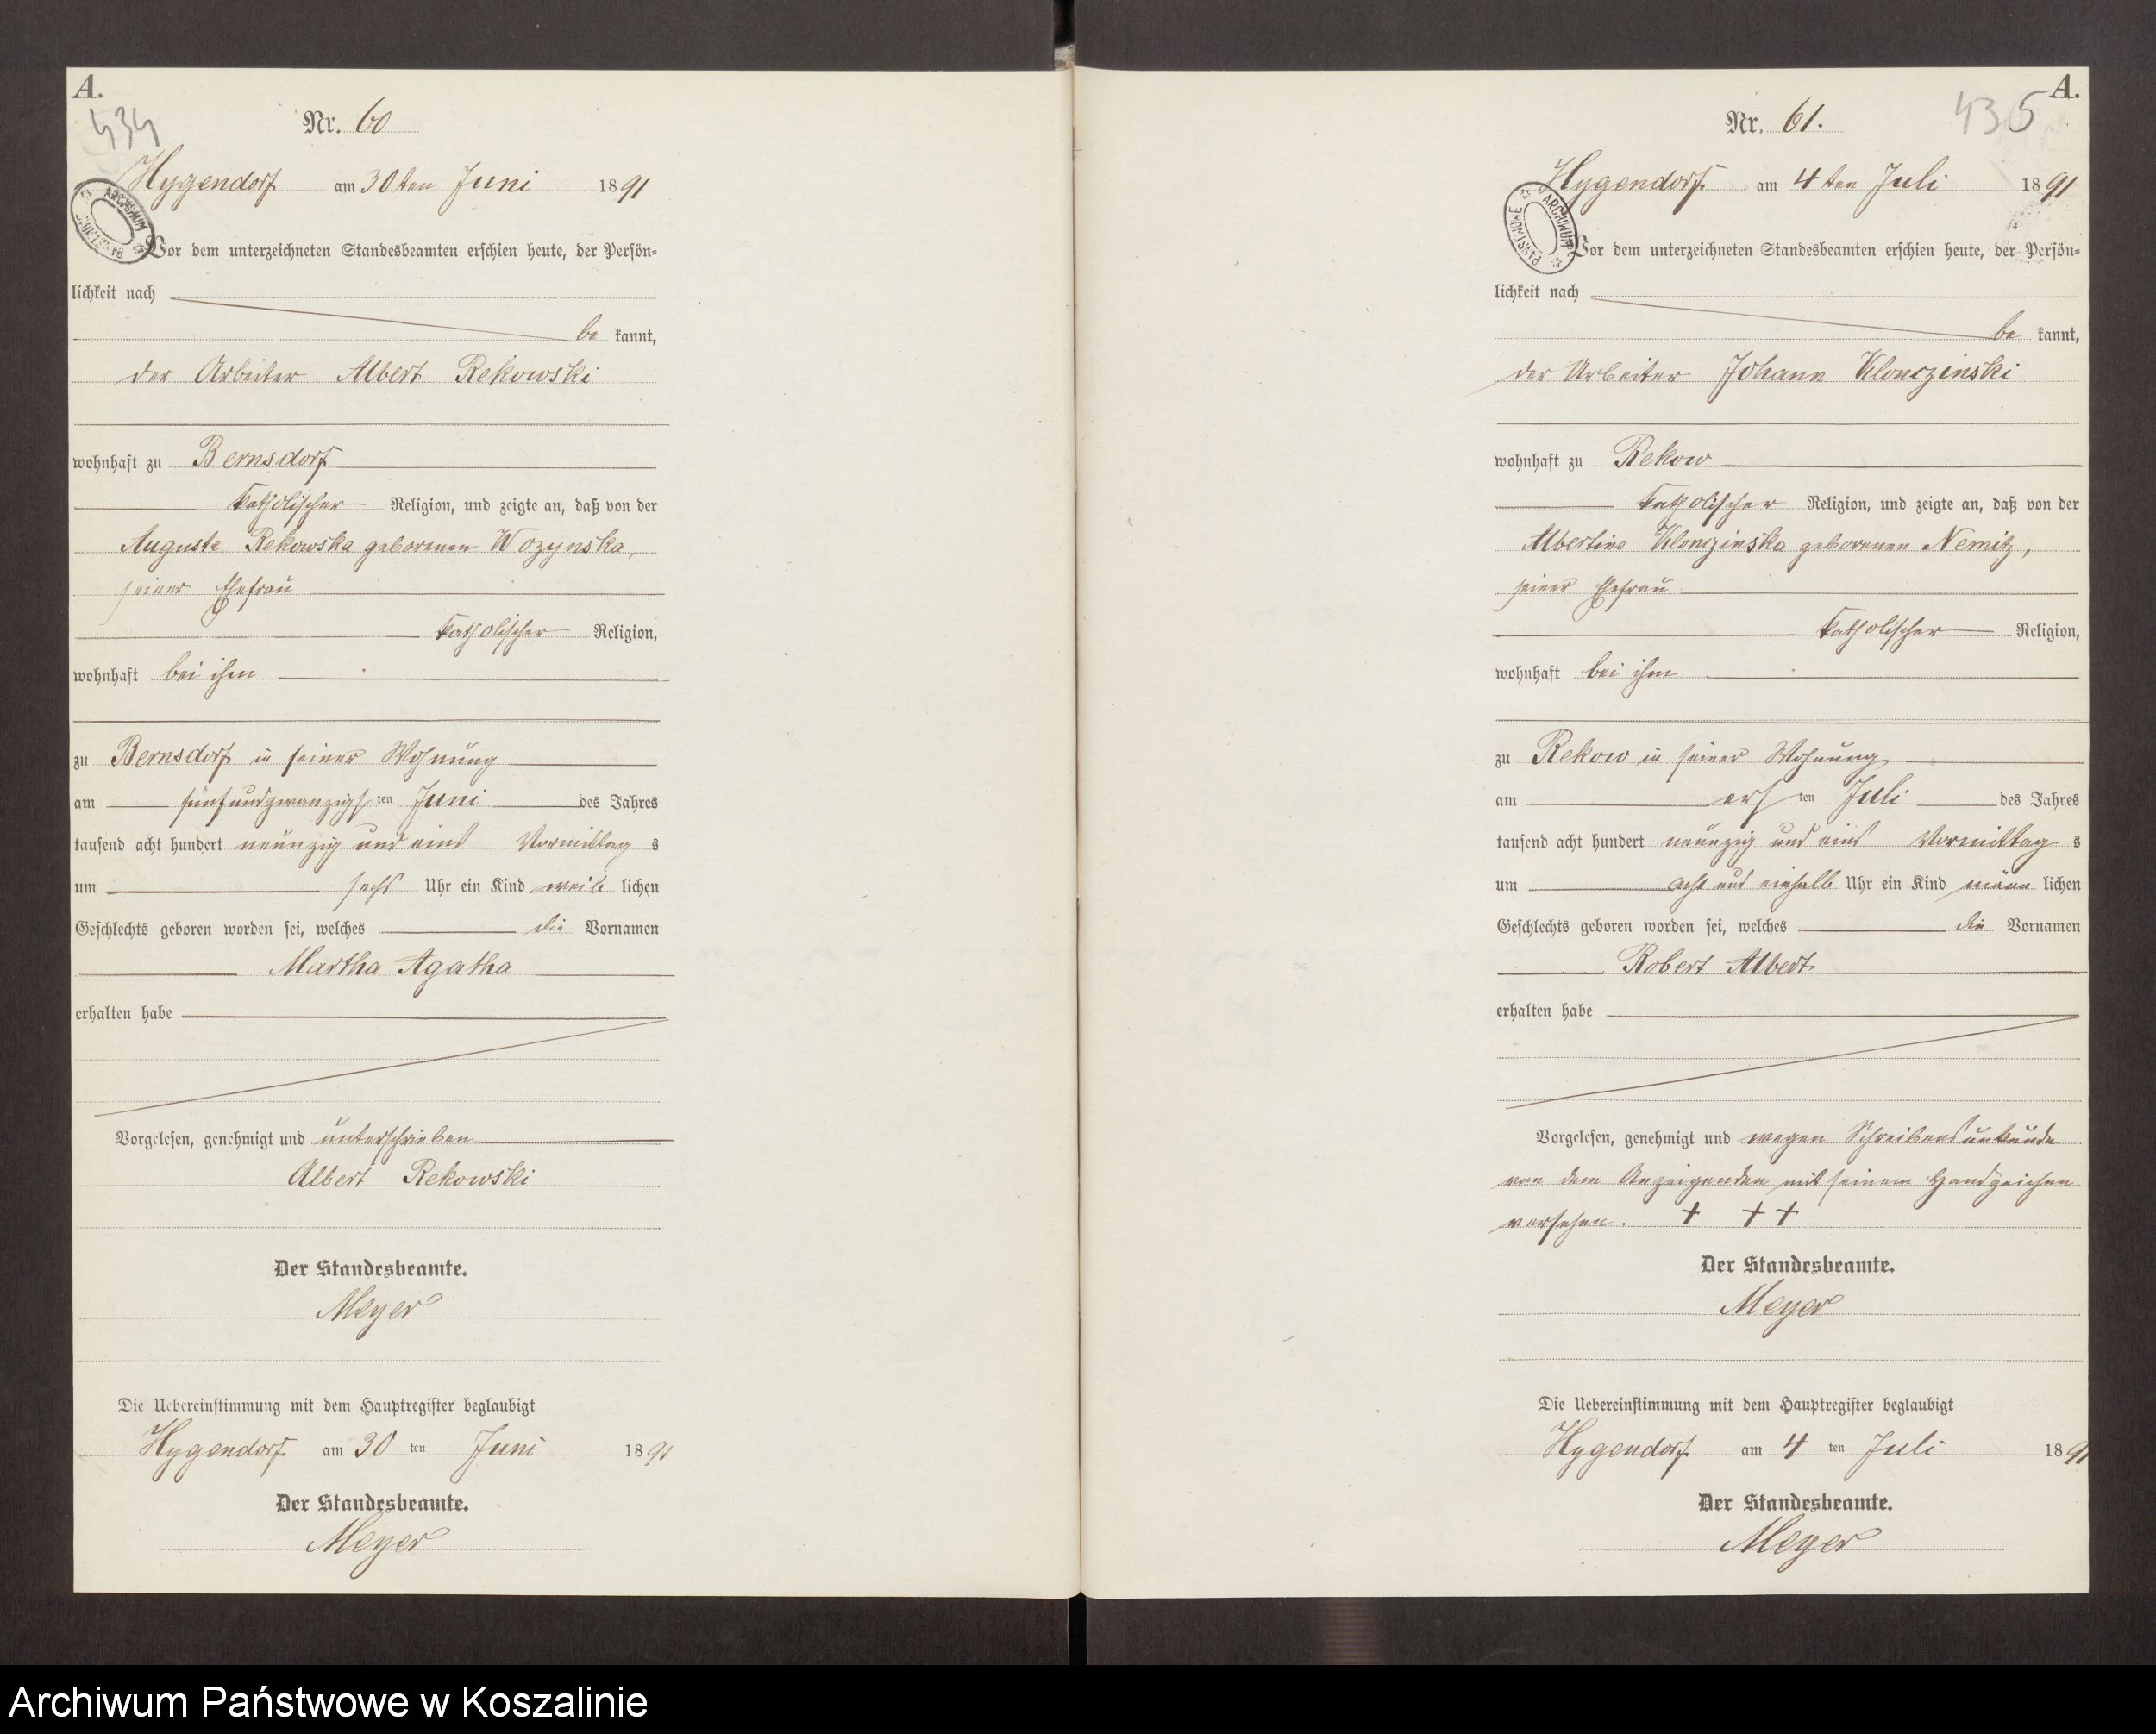 A.
434
Nr. 60
Hygendorf am 30ten Juni 1891
Vor dem unterzeichneten Standesbeamten erschien heute, der Persön-
lichkeit nach
be kannt,
der Arbeiter Albert Rekowski
wohnhaft zu Bernsdorf
katholischer Religion, und zeigte an, daß von der
Auguste Rekowska geborenen Wozynska,
seiner Ehefrau
katholischer Religion,
wohnhaft bei ihm
zu Bernsdorf in seiner Wohnung
am fünfundzwanzigsten Juni des Jahres
tausend acht hundert neunzig und eins Vormittag s
um sechs Uhr ein Kind weib lichen
Geschlechts geboren worden sei, welches die Vornamen
Martha Agatha
erhalten habe
Vorgelesen, genehmigt und unterschrieben
Albert Rekowski
Der Standesbeamte.
Meyer
Die Uebereinstimmung mit dem Hauptregister beglaubigt
Hygendorf am 30 ten Juni 1891
Der Standesbeamte.
Meyer
A.
435
Nr. 61.
Hygendorf am 4ten Juli 1891
ARCHIWUM PAŃSTWOWE
Vor dem unterzeichneten Standesbeamten erschien heute, der Persön-
lichkeit nach
be kannt,
der Arbeiter Johann Klonczinski
wohnhaft zu Rekow
katholischer Religion, und zeigte an, daß von der
Albertine Klonczinska geborenen Nemitz,
seiner Ehefrau
katholischer Religion,
wohnhaft bei ihm
zu Rekow in seiner Wohnung
am ersten Juli des Jahres
tausend acht hundert neunzig und eins Vormittag s
um acht und einhalb Uhr ein Kind männ lichen
Geschlechts geboren worden sei, welches die Vornamen
Robert Albert
erhalten habe
Vorgelesen, genehmigt und wegen Schreibensunkunde
von dem Anzeigenden mit seinem Handzeichen
versehen. + + +
Der Standesbeamte.
Meyer
Die Uebereinstimmung mit dem Hauptregister beglaubigt
Hygendorf am 4 ten Juli 1891
Der Standesbeamte.
Meyer
Archiwum Państwowe w Koszalinie